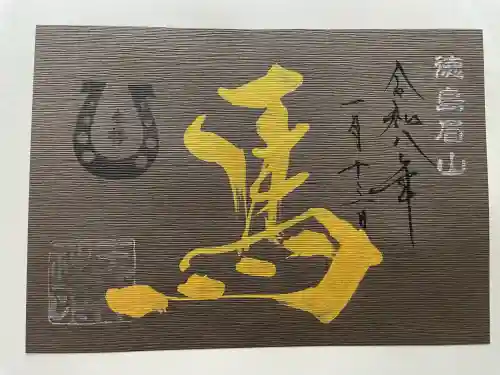 徳島眉山
令和八年
一月十三日
馬